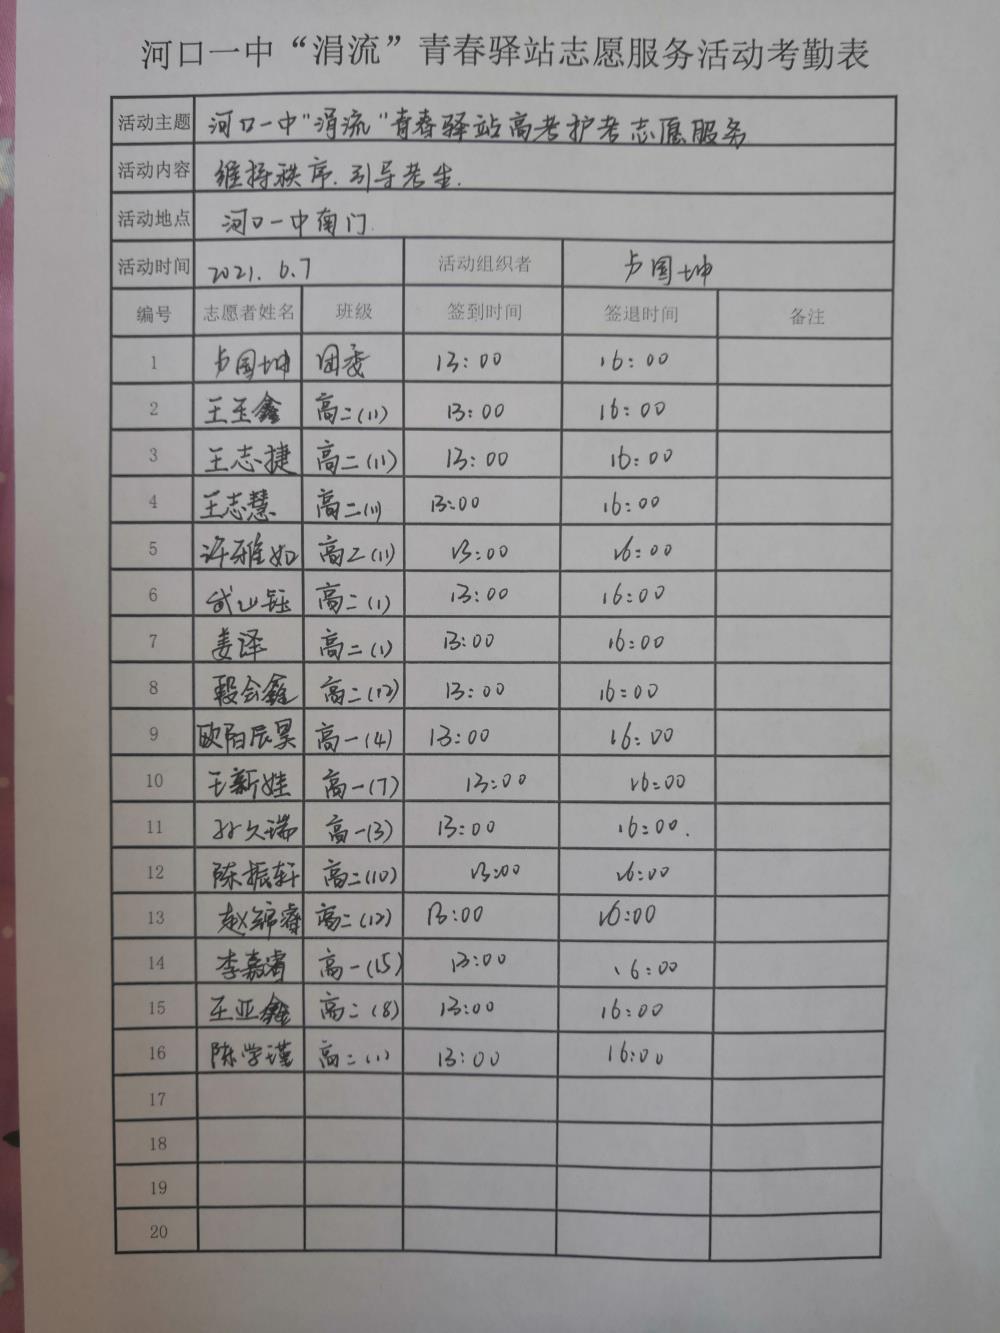 河口一中“涓流”青春驿站志愿服务活动考勤表
活动主题 河口一中"涓流"青春驿站高考护考志愿服务
活动内容 维持秩序、引导考生.
活动地点 河口一中南门
活动时间 2021.6.7 活动组织者 卢国坤
编号 志愿者姓名 班级 签到时间 签退时间 备注
1 卢国坤 团委 13:00 16:00
2 王玉鑫 高二(11) 13:00 16:00
3 王志捷 高二(11) 13:00 16:00
4 王志慧 高二(11) 13:00 16:00
5 许雅如 高二(11) 13:00 16:00
6 武山钰 高二(1) 13:00 16:00
7 姜译 高二(1) 13:00 16:00
8 段会鑫 高二(12) 13:00 16:00
9 欧阳辰昊 高一(4) 13:00 16:00
10 王新娃 高一(7) 13:00 16:00
11 孙久瑞 高一(3) 13:00 16:00.
12 陈振轩 高二(10) 13:00 16:00
13 赵锦睿 高二(12) 13:00 16:00
14 李嘉睿 高一(15) 13:00 16:00
15 王亚鑫 高二(8) 13:00 16:00
16 陈学瑾 高二(1) 13:00 16:00
17
18
19
20